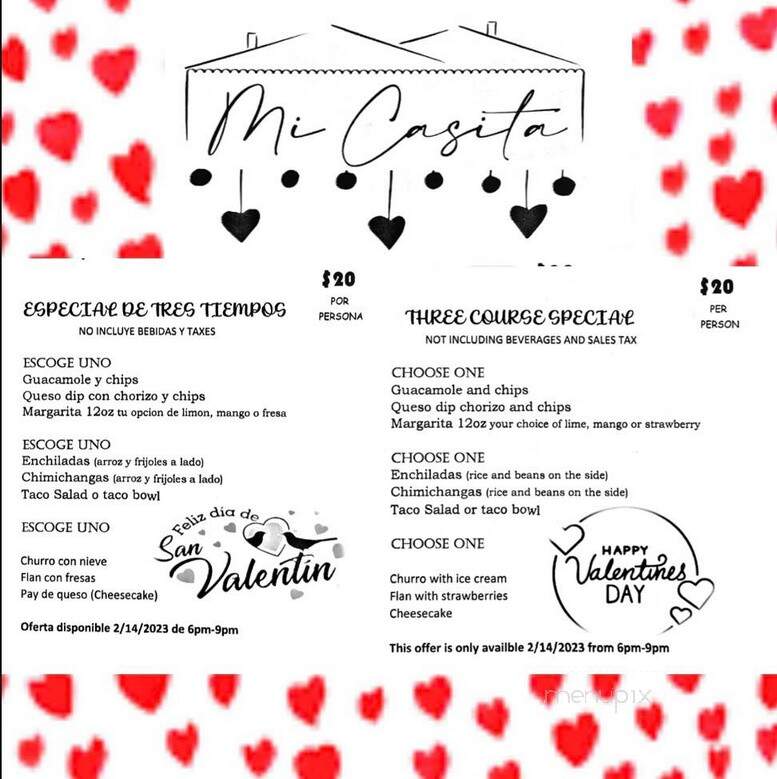 Mi Casita
ESPECIAL DE TRES TIEMPOS
$20
POR
PERSONA
NO INCLUYE BEBIDAS Y TAXES
ESCOGE UNO
Guacamole y chips
Queso dip con chorizo y chips
Margarita 12oz tu opcion de limon, mango o fresa
ESCOGE UNO
Enchiladas (arroz y frijoles a lado)
Chimichangas (arroz y frijoles a lado)
Taco Salad o taco bowl
ESCOGE UNO
Churro con nieve
Flan con fresas
Pay de queso (Cheesecake)
Feliz dia de
San
Valentin
Oferta disponible 2/14/2023 de 6pm-9pm
THREE COURSE SPECIAL
$20
PER
PERSON
NOT INCLUDING BEVERAGES AND SALES TAX
CHOOSE ONE
Guacamole and chips
Queso dip chorizo and chips
Margarita 12oz your choice of lime, mango or strawberry
CHOOSE ONE
Enchiladas (rice and beans on the side)
Chimichangas (rice and beans on the side)
Taco Salad or taco bowl
CHOOSE ONE
Churro with ice cream
Flan with strawberries
Cheesecake
HAPPY
Valentines
DAY
This offer is only availble 2/14/2023 from 6pm-9pm
menupix